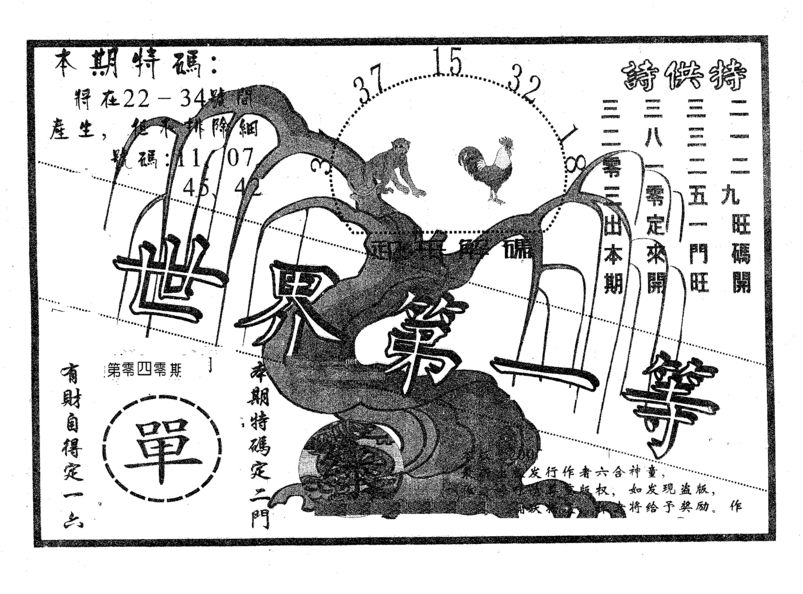 本期特碼：
將在22－34號間
產生，但不排除細
號碼：11、07、
45、42
37
15
32
18
詩供特
二一二九旺碼開
三三二五一門旺
三八一零定來開
三二零三出本期
解碼
世界第一等
第零四零期
單
有財自得定一六
本期特碼定二門
发行作者六合神童，
版权，如发现盗版，
将给予奖励。作